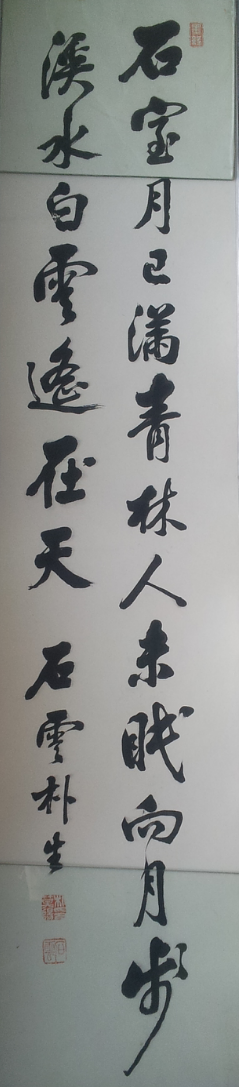 石室月已滿青林人未眠向月步
溪水白雲遙在天
石雲朴生